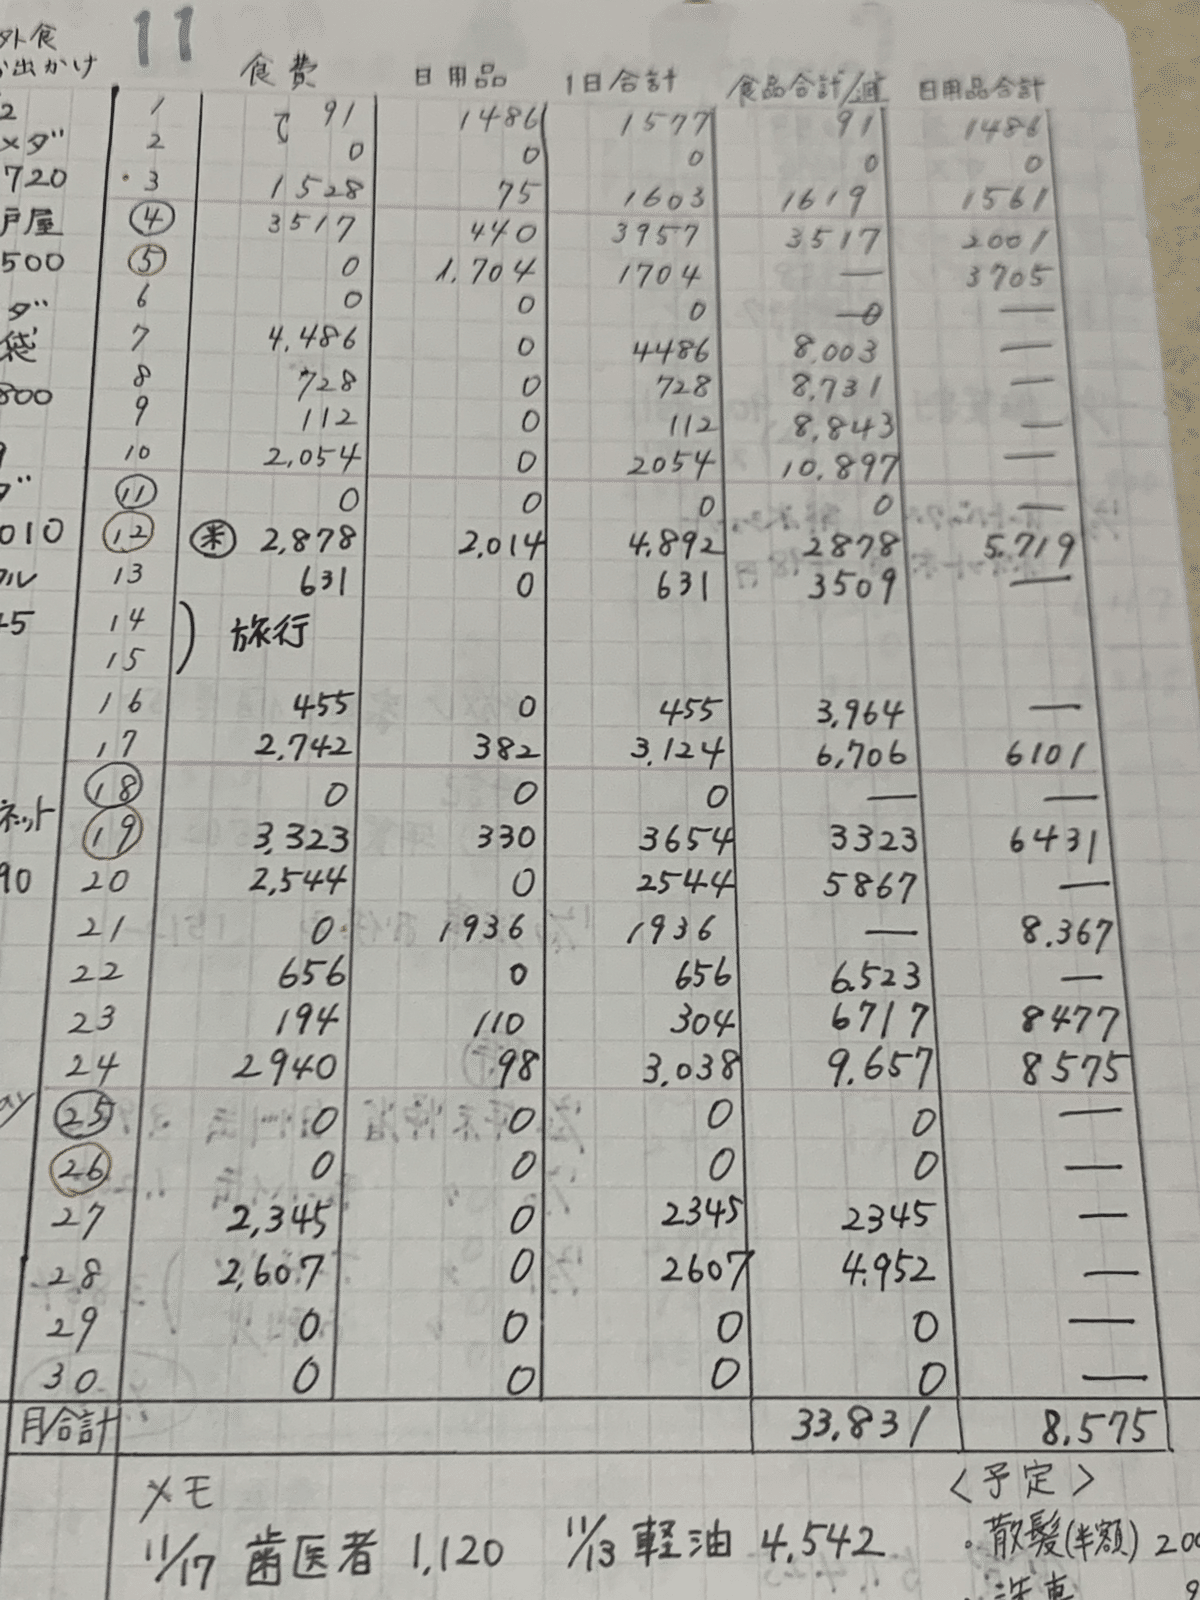 外食 11
出かけ 食費 日用品 1日合計 食品合計/週 日用品合計
2 1 て 91 1486 1577 91 1486
メダ 2 0 0 0 0 0
720 ・3 1528 75 1603 1619 1561
戸屋 ④ 3517 440 3957 3517 2001
500 ⑤ 0 1.704 1704 — 3705
ダ 6 0 0 0 0 —
袋 7 4,486 0 4486 8,003 —
800 8 728 0 728 8,731 —
9 112 0 112 8,843 —
10 2,054 0 2054 10,897 —
ダ ⑪ 0 0 0 0 —
010 ⑫ ㊍ 2,878 2,014 4,892 2878 5,719
ル 13 631 0 631 3509 —
45 14 ) 旅行
15
16 455 0 455 3,964 —
17 2,742 382 3,124 6,706 6101
⑱ 0 0 0 — —
ネット ⑲ 3,323 330 3654 3323 6431
90 20 2,544 0 2544 5867 —
21 0 1936 1936 — 8.367
22 656 0 656 6.523 —
23 194 110 304 6717 8477
24 2940 98 3,038 9.657 8575
ay ㉕ 0 0 0 0 —
㉖ 0 0 0 0 —
27 2,345 0 2345 2345 —
28 2,607 0 2607 4.952 —
29 0 0 0 0 —
30 0 0 0 0 —
月合計 33,831 8,575
メモ 〈予定〉
11/17 歯医者 1,120 11/13 軽油 4,542 ・散髪(半額) 200
・洗車 9